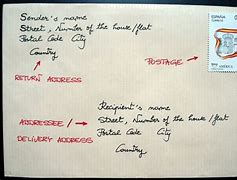 Sender's name
Street, Number of the house/flat
Postal Code City
Country
RETURN ADDRESS
POSTAGE
ESPAÑA
AMÉRICA
Recipient's name
Street, Number of the house/flat
Postal Code City
Country
ADDRESSEE /
DELIVERY ADDRESS